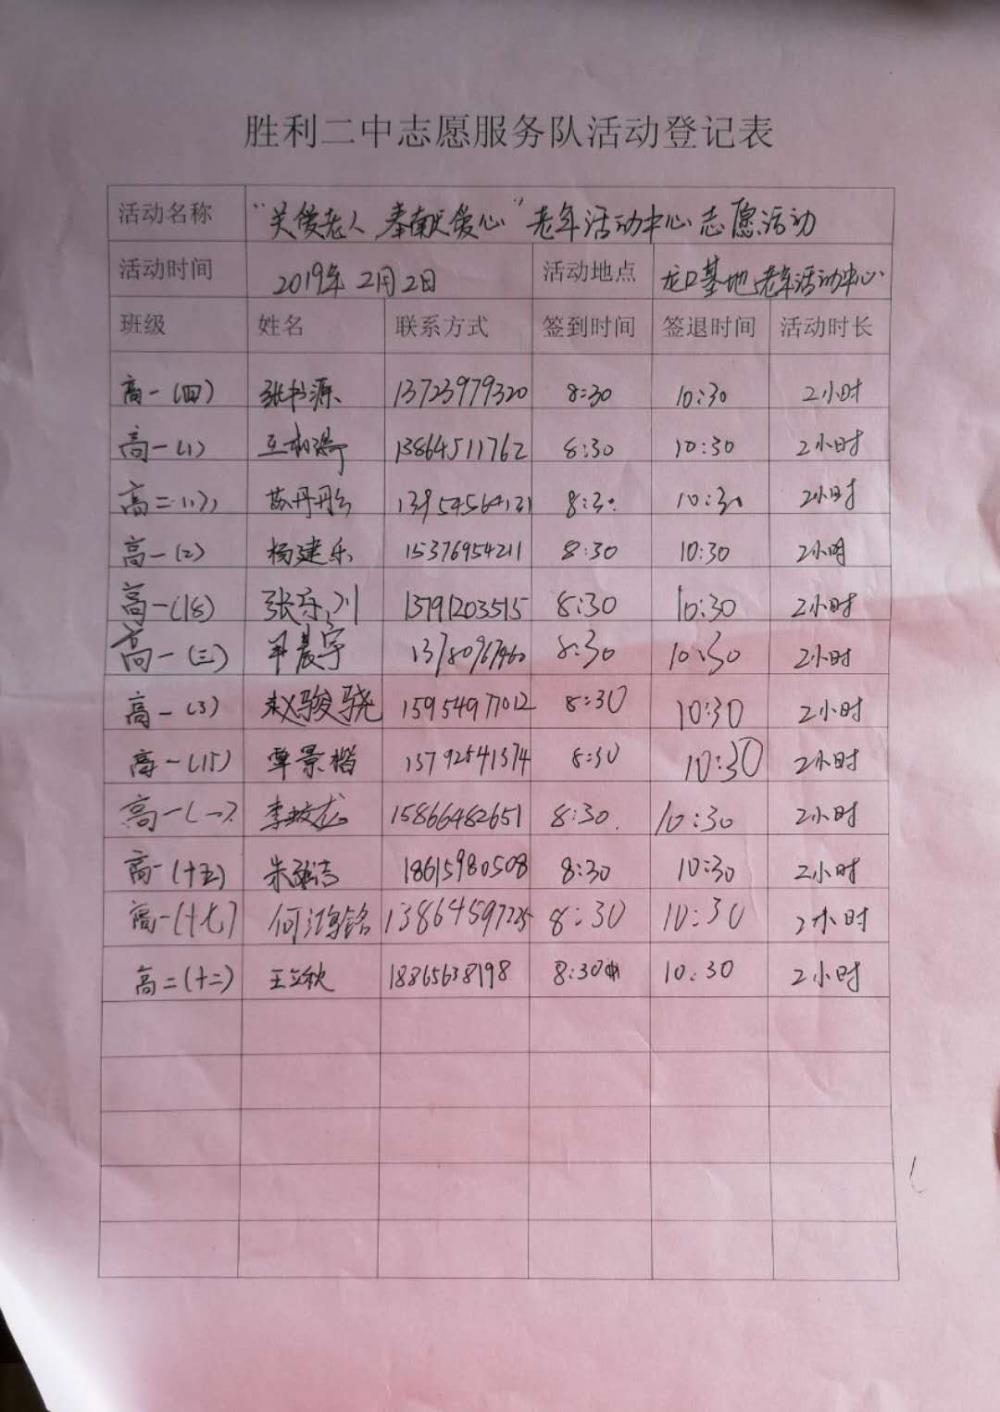 胜利二中志愿服务队活动登记表
活动名称 "关爱老人 奉献爱心" 老年活动中心志愿活动
活动时间 2019年2月2日 活动地点 龙口基地老年活动中心
班级 姓名 联系方式 签到时间 签退时间 活动时长
高一(四) 张书源 13723979320 8:30 10:30 2小时
高一(1) 13864511762 8:30 10:30 2小时
高二 苏丹彤 8:30 10:30 2小时
高一(2) 杨建乐 15376954211 8:30 10:30 2小时
高一(18) 张乐川 13791203515 8:30 10:30 2小时
高一(三) 晨宇 8:30 10:30 2小时
高一(3) 赵骏骁 15954977012 8:30 10:30 2小时
高一(15) 覃景楷 13792541374 8:30 10:30 2小时
高一(一) 李 龙 15866482651 8:30 10:30 2小时
高一(十五) 朱 洁 18615980508 8:30 10:30 2小时
高一(十七) 何鸿铭 13864597225 8:30 10:30 2小时
高二(十二) 王立秋 18865638198 8:30 10:30 2小时